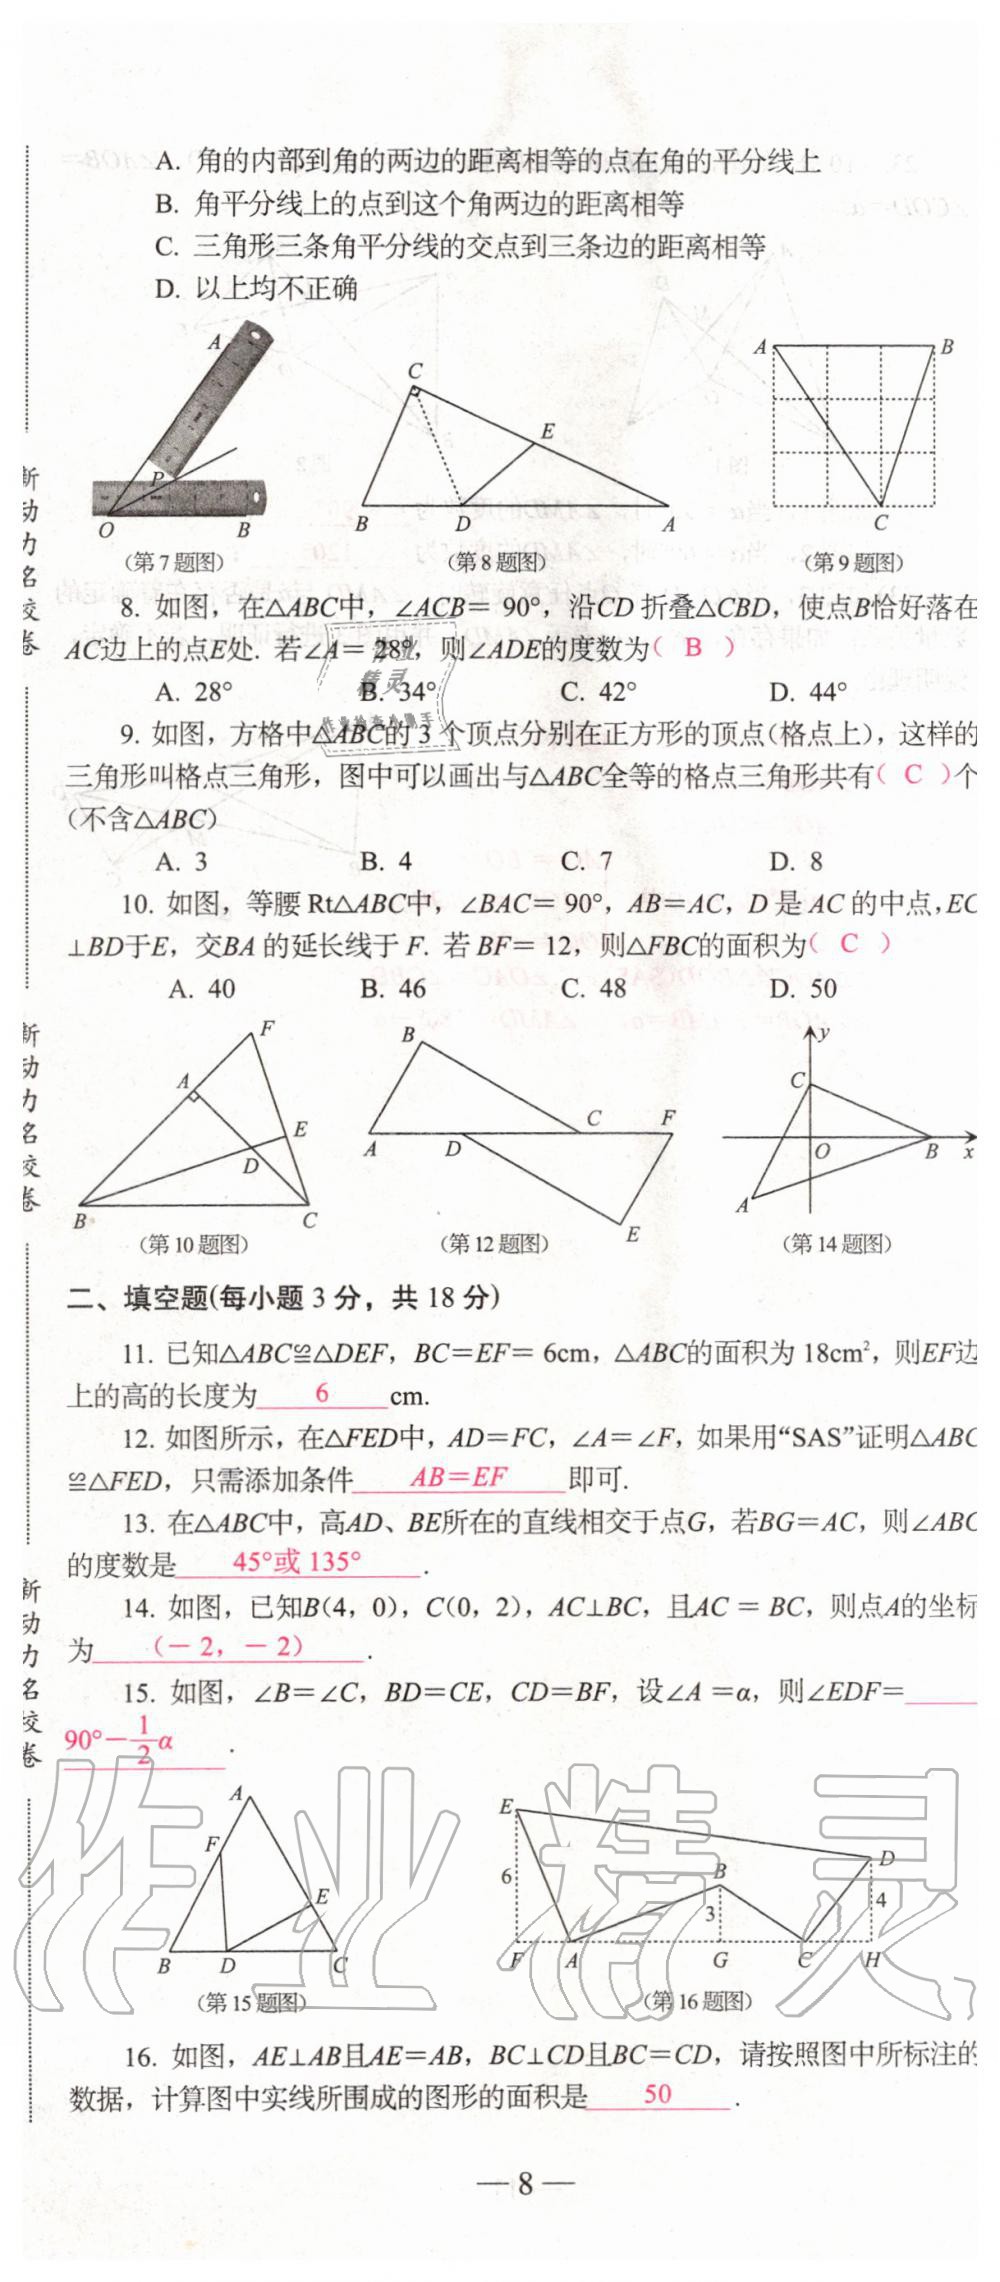 A. 角的内部到角的两边的距离相等的点在角的平分线上
B. 角平分线上的点到这个角两边的距离相等
C. 三角形三条角平分线的交点到三条边的距离相等
D. 以上均不正确
A
P
O
B
(第7题图)
C
E
B
D
A
(第8题图)
A
B
C
(第9题图)
8. 如图，在△ABC中，∠ACB= 90°，沿CD 折叠△CBD，使点B恰好落在
AC边上的点E处. 若∠A= 28°，则∠ADE的度数为( B )
A. 28° B. 34° C. 42° D. 44°
9. 如图，方格中△ABC的 3 个顶点分别在正方形的顶点(格点上)，这样的
三角形叫格点三角形，图中可以画出与△ABC全等的格点三角形共有( C )个
(不含△ABC)
A. 3 B. 4 C. 7 D. 8
10. 如图，等腰 Rt△ABC中，∠BAC= 90°，AB=AC，D 是 AC 的中点，EC
⊥BD于E，交BA 的延长线于 F. 若 BF= 12，则△FBC的面积为( C )
A. 40 B. 46 C. 48 D. 50
F
A
E
D
B
C
(第10题图)
B
C
F
A
D
E
(第12题图)
y
C
O
B
x
A
(第14题图)
二、填空题(每小题 3 分，共 18 分)
11. 已知△ABC≌△DEF，BC=EF= 6cm，△ABC的面积为 18cm²，则EF边
上的高的长度为 6 cm.
12. 如图所示，在△FED中，AD=FC，∠A=∠F，如果用“SAS”证明△ABC
≌△FED，只需添加条件 AB=EF 即可.
13. 在△ABC中，高AD、BE所在的直线相交于点G，若BG=AC，则∠ABC
的度数是 45°或 135° .
14. 如图，已知B(4，0)，C(0，2)，AC⊥BC，且AC = BC，则点A的坐标
为 (－2，－2) .
15. 如图，∠B=∠C，BD=CE，CD=BF，设∠A =α，则∠EDF=
90°－1/2 α .
A
F
E
B
D
C
(第15题图)
E
D
B
6
3
4
F
A
G
C
H
(第16题图)
16. 如图，AE⊥AB且AE=AB，BC⊥CD且BC=CD，请按照图中所标注的
数据，计算图中实线所围成的图形的面积是 50 .
— 8 —
新动力名校卷
新动力名校卷
新动力名校卷
作业精灵
作业精灵